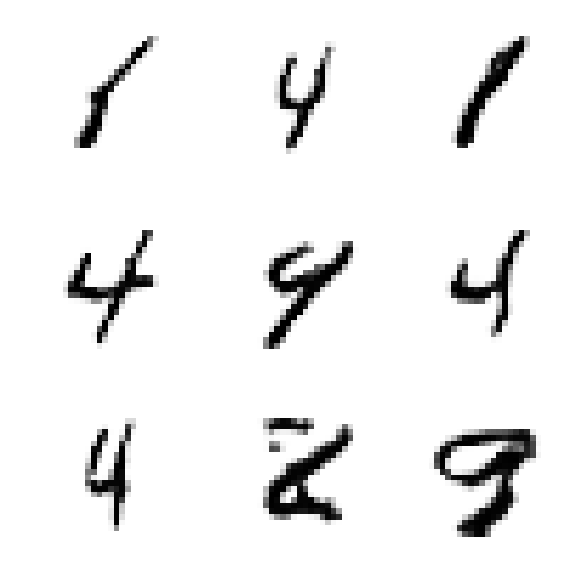 1 4 1
4 9 4
4 2 9